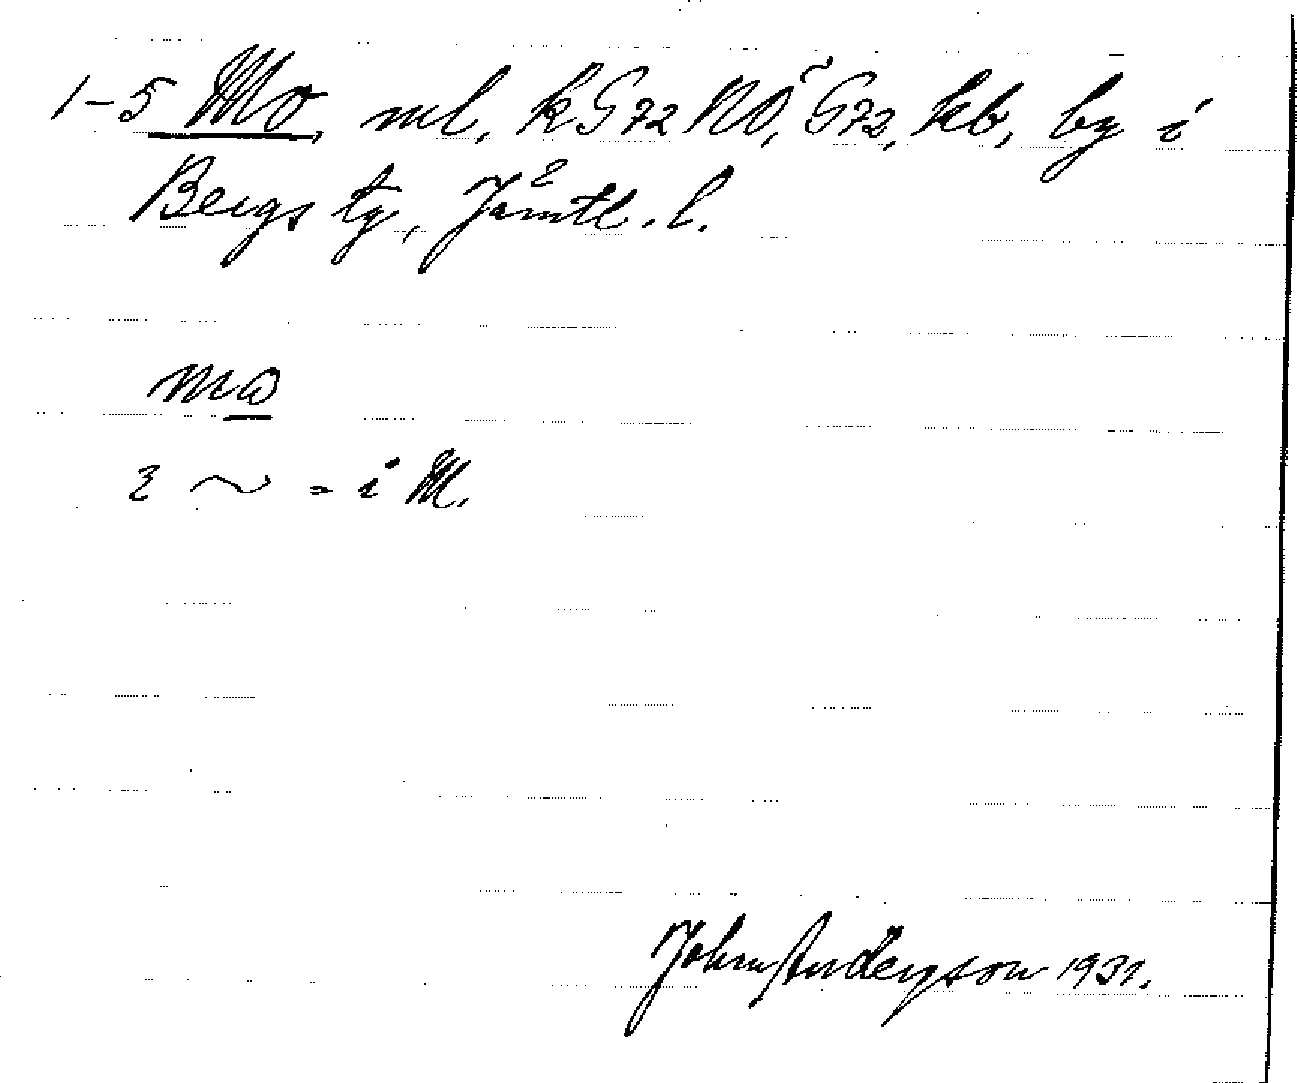 1-5 Mo, ml, kG72NO, G72, kb, by i
Bergs tg, Jämtl. l.
mω
ɛ ~ = i M.
John Anderson 1931.